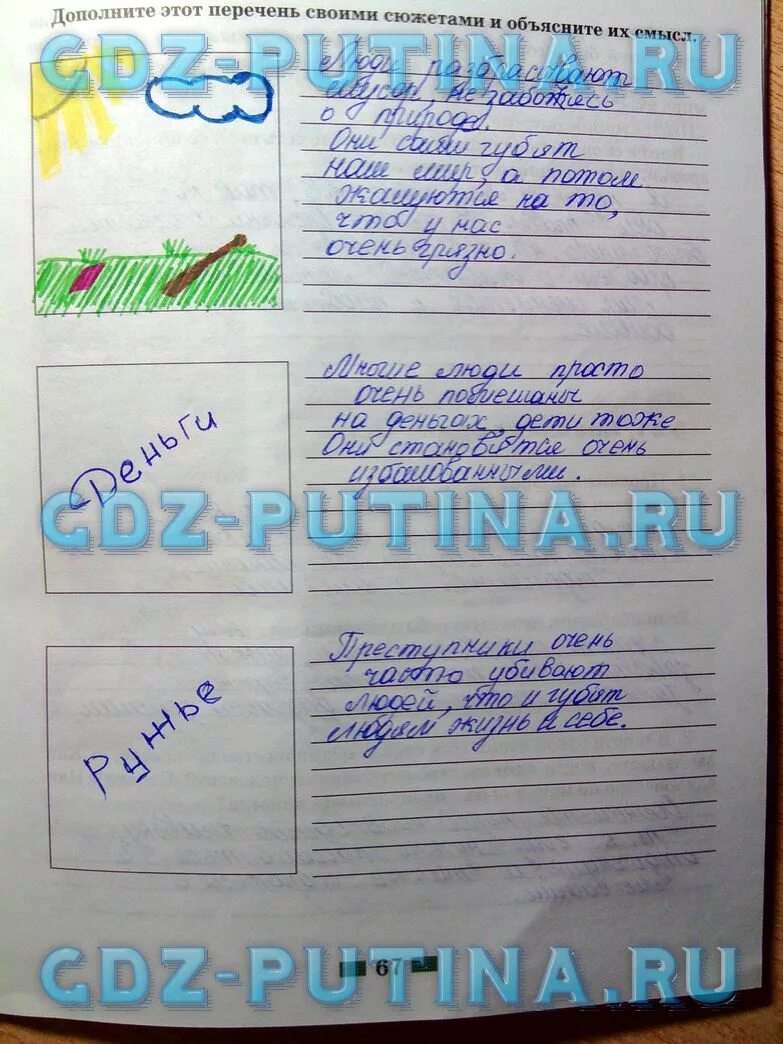 Дополните этот перечень своими сюжетами и объясните их смысл.
Люди разбрасывают
мусор, не заботясь
о природе.
Они сами губят
наш мир, а потом
жалуются на то,
что у нас
очень грязно.
GDZ-PUTINA.RU
Деньги
Многие люди просто
очень помешаны
на деньгах, дети тоже
Они становятся очень
избалованными.
GDZ-PUTINA.RU
Ружье
Преступники очень
часто убивают
людей, что и губят
людям жизнь и себе.
GDZ-PUTINA.RU
67